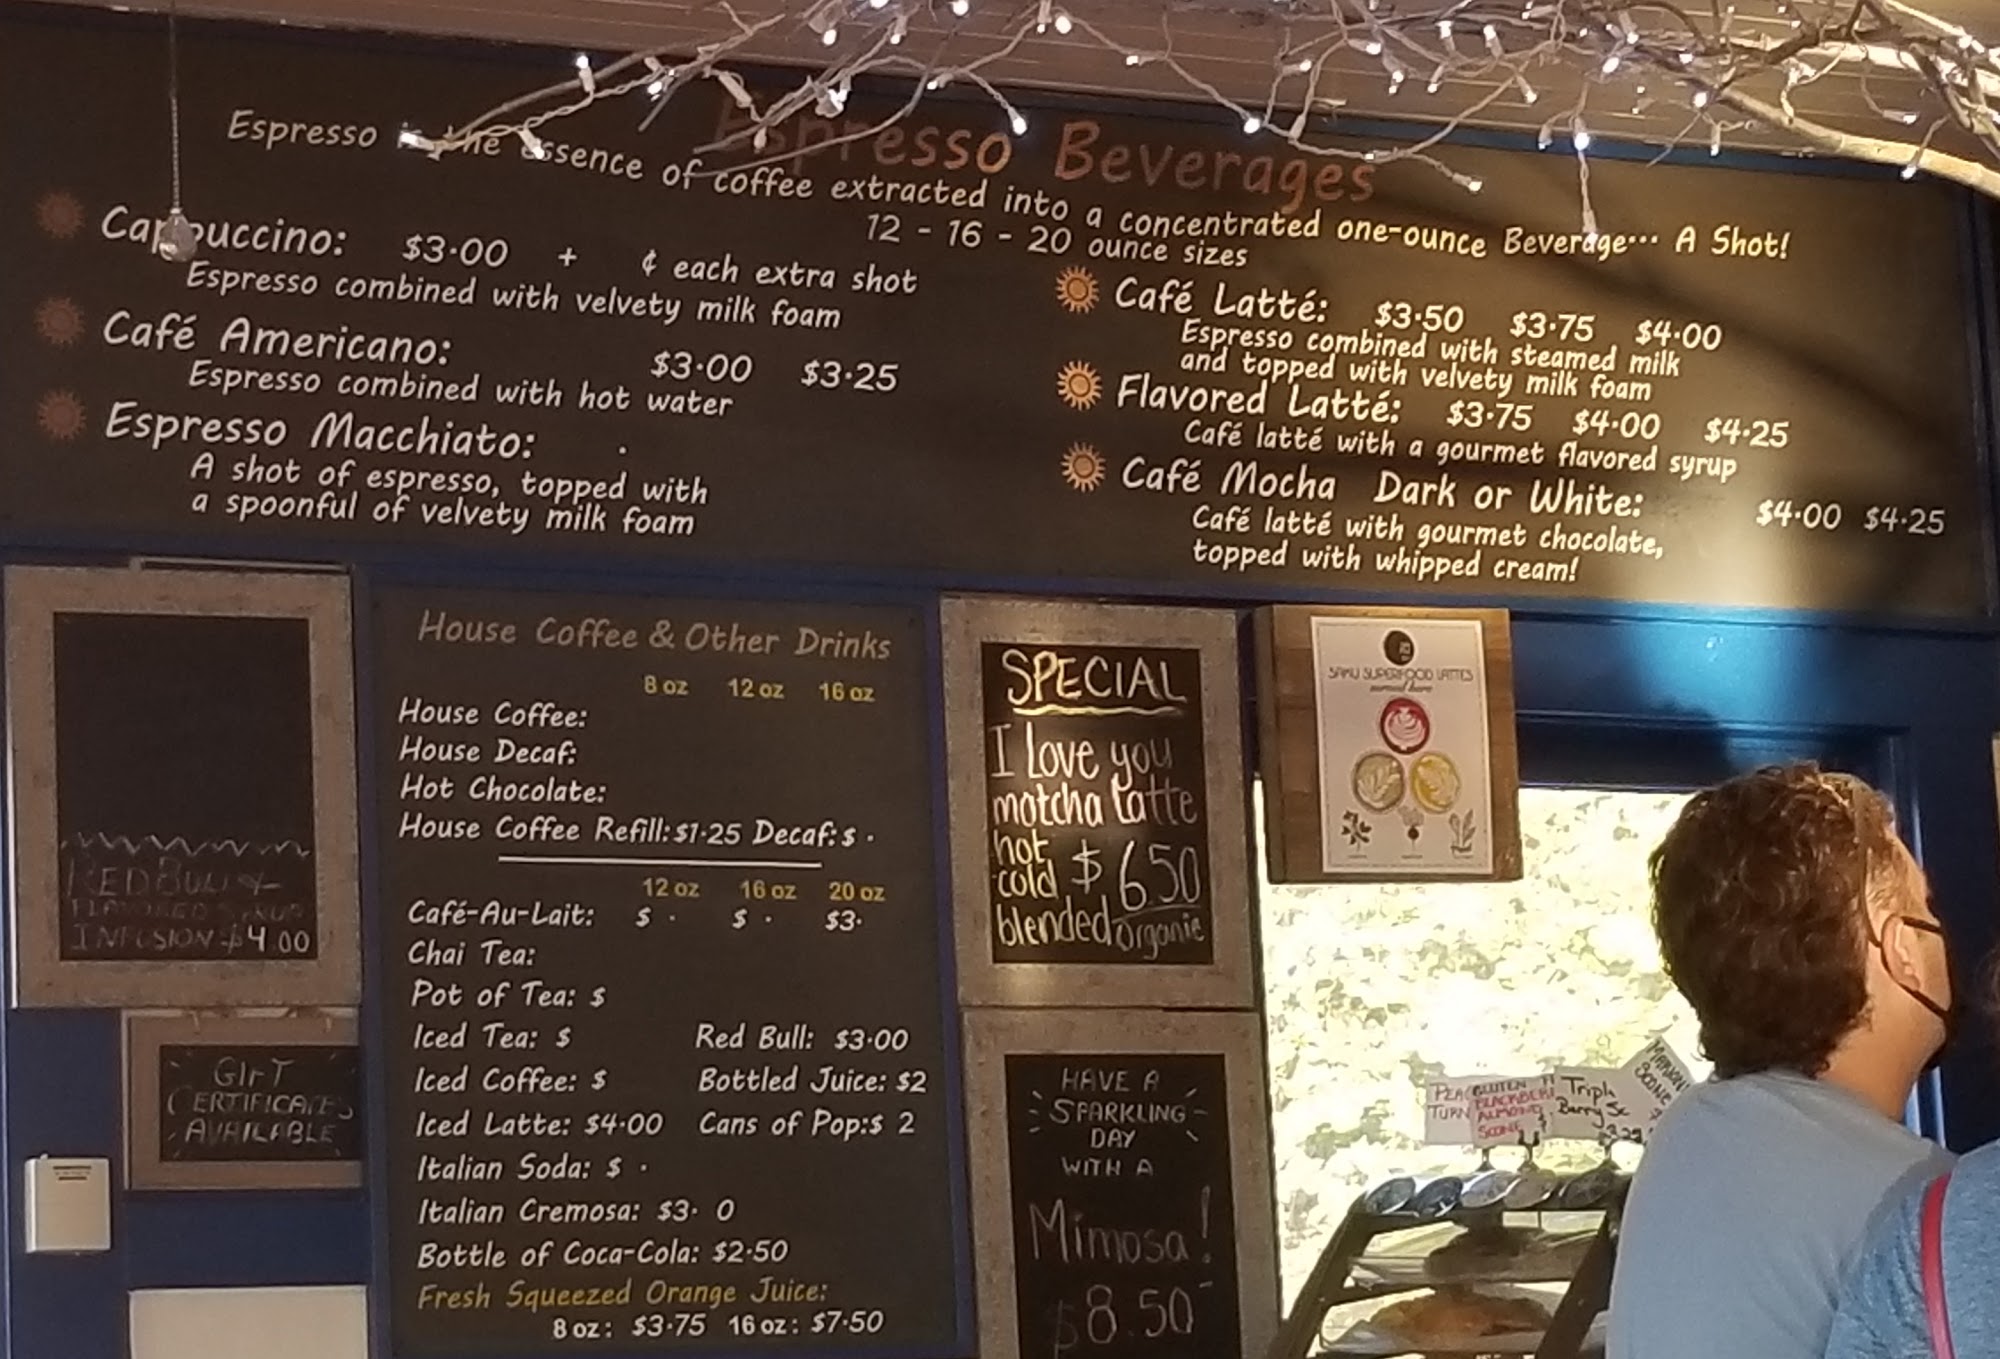 Espresso Beverages
Espresso the essence of coffee extracted into a concentrated one-ounce Beverage... A Shot!
12 - 16 - 20 ounce sizes
Cappuccino: $3.00 + ¢ each extra shot
Espresso combined with velvety milk foam
Café Americano: $3.00 $3.25
Espresso combined with hot water
Espresso Macchiato: .
A shot of espresso, topped with
a spoonful of velvety milk foam
Café Latté: $3.50 $3.75 $4.00
Espresso combined with steamed milk
and topped with velvety milk foam
Flavored Latté: $3.75 $4.00 $4.25
Café latté with a gourmet flavored syrup
Café Mocha Dark or White: $4.00 $4.25
Café latté with gourmet chocolate,
topped with whipped cream!
RED BULL
FLAVORED SYRUP
INFUSION $4.00
GIFT
CERTIFICATES
AVAILABLE
House Coffee & Other Drinks
8 oz 12 oz 16 oz
House Coffee:
House Decaf:
Hot Chocolate:
House Coffee Refill: $1.25 Decaf: $ .
12 oz 16 oz 20 oz
Café-Au-Lait: $ . $ . $3.
Chai Tea:
Pot of Tea: $
Iced Tea: $ Red Bull: $3.00
Iced Coffee: $ Bottled Juice: $2
Iced Latte: $4.00 Cans of Pop:$ 2
Italian Soda: $ .
Italian Cremosa: $3. 0
Bottle of Coca-Cola: $2.50
Fresh Squeezed Orange Juice:
8 oz: $3.75 16 oz: $7.50
SPECIAL
I Love you
matcha latte
hot
cold $6.50
blended organic
SAKU SUPERFOOD LATTES
served here
HAVE A
SPARKLING
DAY
WITH A
Mimosa!
$8.50
TURN
GLUTEN
BLACKBERRY
ALMOND
SCONE
Triple
Berry Sc
3.29